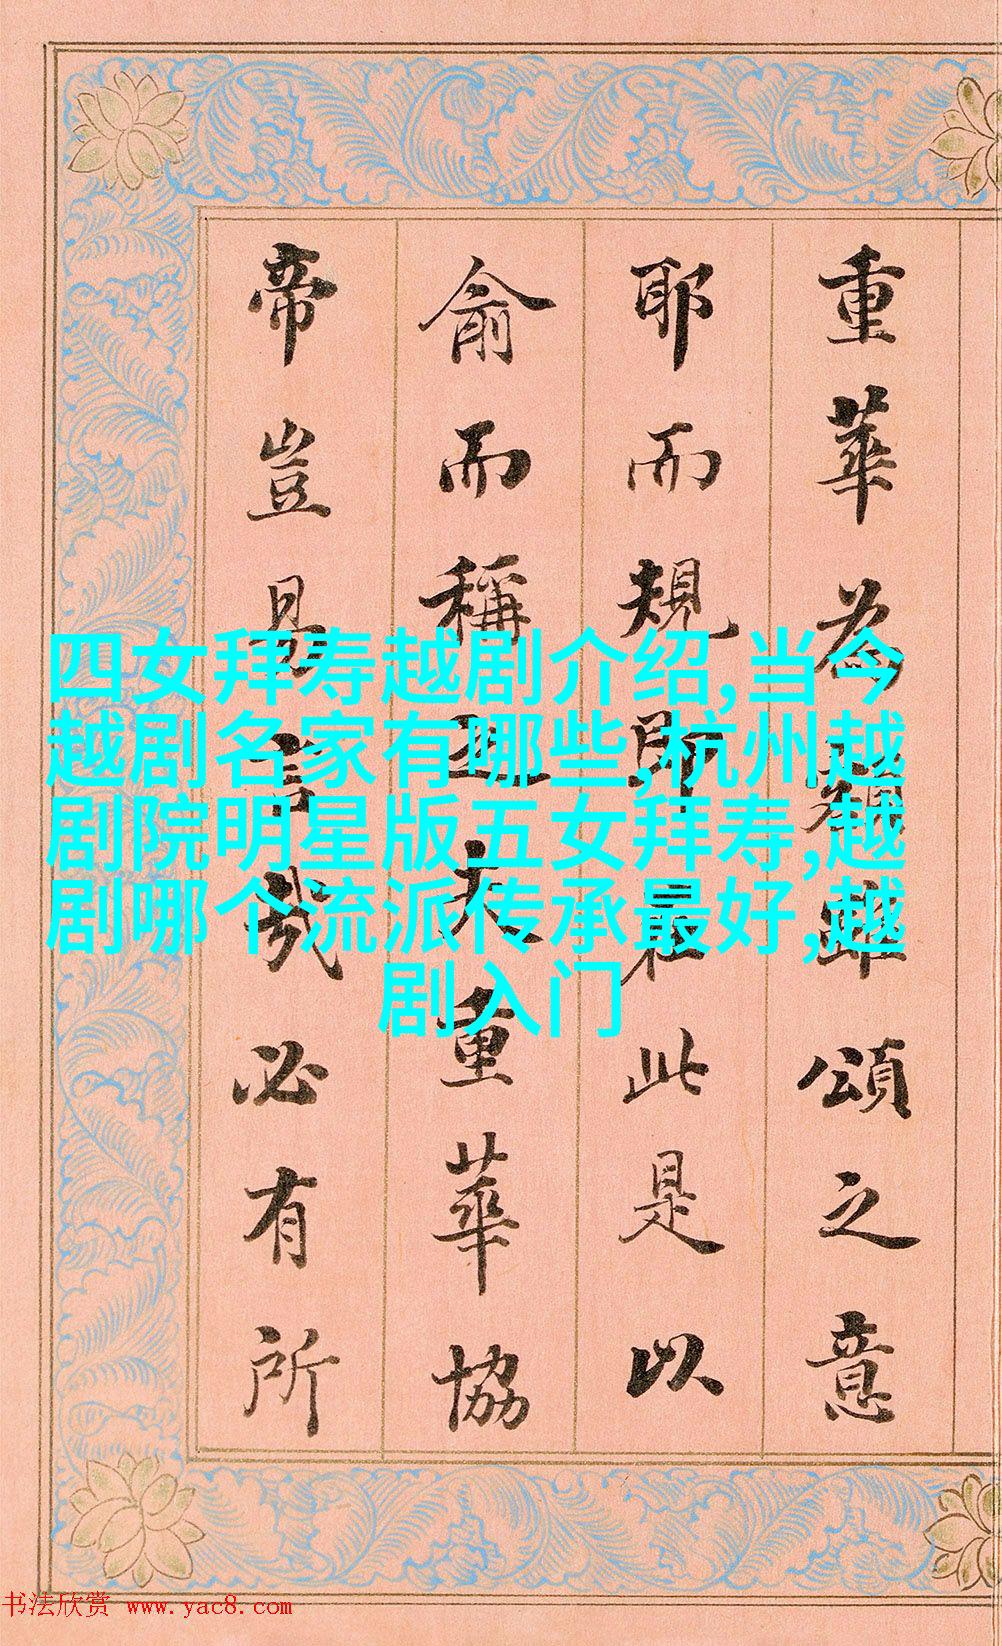 重華為雖頌之意
耶而規即此是以
俞而稱夫重華協
帝豈易言哉必有所
四女拜寿越剧介绍,当今
越剧名家有哪些,杭州越
剧院明星版五女拜寿,越
剧哪个流派传承最好,越
剧入门
书法欣赏 www.yac8.com